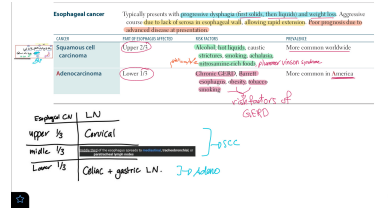 Esophageal cancer
Typically presents with progressive dysphagia (first solids, then liquids) and weight loss. Aggressive
course due to lack of serosa in esophageal wall, allowing rapid extension. Poor prognosis due to
advanced disease at presentation.
CANCER PART OF ESOPHAGUS AFFECTED RISK FACTORS PREVALENCE
Squamous cell carcinoma
Upper 2/3
Alcohol, hot liquids, caustic
strictures, smoking, achalasia,
nitrosamine-rich foods, plummer vinson syndrome
More common worldwide
Adenocarcinoma
Lower 1/3
Chronic GERD, Barrett
esophagus, obesity, tobacco
smoking
More common in America
risk factors of
GERD
Esophageal CA LN
upper 1/3 Cervical
middle 1/3
of the esophagus spreads to mediastinal, tracheobronchial or
paratracheal lymph nodes
→ SCC
Lower 1/3 Celiac + gastric LN. → Adeno